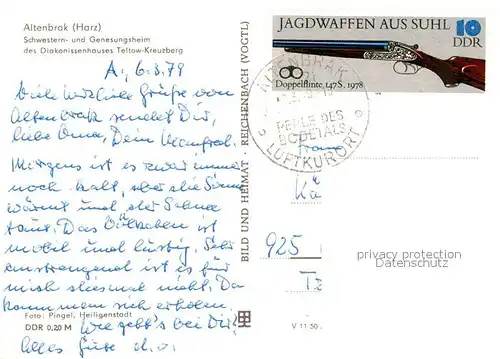 Altenbrak (Harz)
Schwestern- und Genesungsheim
des Diakonissenhauses Teltow-Kreuzberg
A., 6.3.79
Viele herzliche Grüße von
Altenbrak sendet Dir,
liebe Oma, Dein Manfred.
Morgens ist es zwar immer
noch kalt, aber die Sonne
wärmt und der Schnee
taut. Das Völkchen ist
mobil und lustig. Sehr
anstrengend ist es für
mich diesmal nicht. Da
kann man sich erholen.
Foto: Pingel, Heiligenstadt
Wie geht's bei Dir?
DDR 0,20 M
Alles Gute
BILD UND HEIMAT · REICHENBACH (VOGTL)
JAGDWAFFEN AUS SUHL
10
DDR
Doppelflinte 147 S, 1978
ALTENBRAK
PERLE DES
BODETALS
LUFTKURORT
Frau
925
privacy protection
Datenschutz
V 11 50